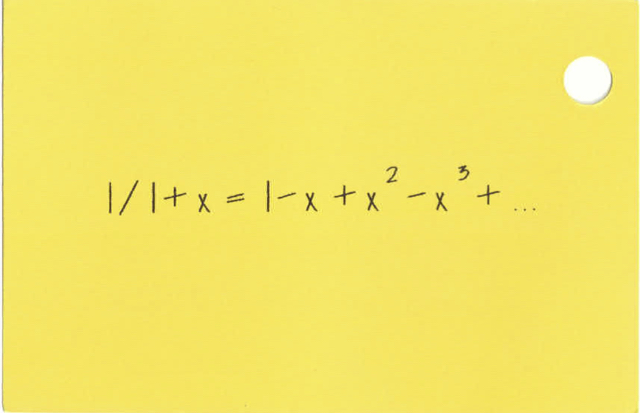 1/1+x = 1-x+x²-x³+ ...